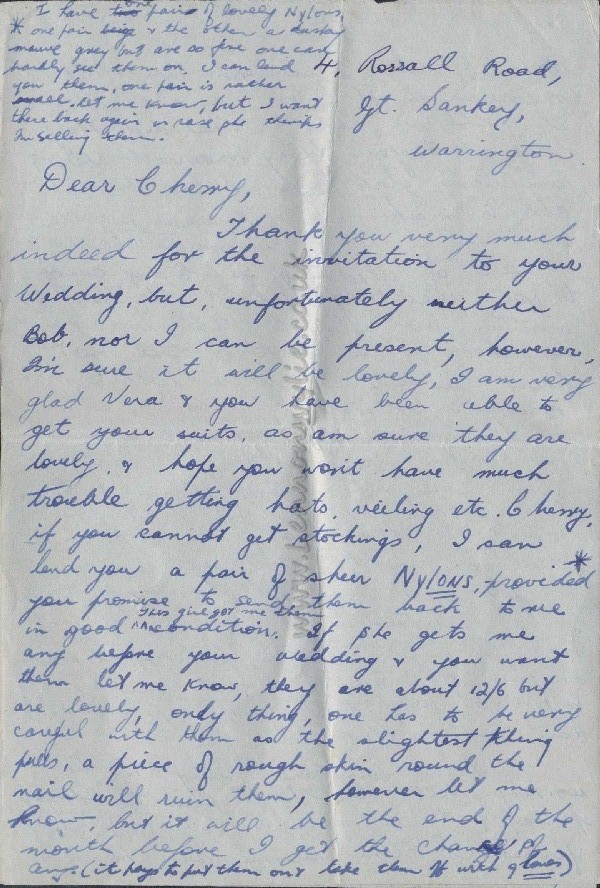 I have one pair of lovely Nylons,
* one pair beige & the other a dusky
mauve grey but are so fine one can
hardly see them on. I can lend
you them, one pair is rather
small. Let me know, but I want
there back again in case she thinks
I'm selling them.
4, Rossall Road,
Gt. Sankey,
Warrington
Dear Cherry,
Thank you very much
indeed for the invitation to your
Wedding, but, unfortunately neither
Bob, nor I can be present, however,
I'm sure it will be lovely, I am very
glad Vera & you have been able to
get your suits, as am sure they are
lovely, & hope you won't have much
trouble getting hats, veiling etc. Cherry,
if you cannot get stockings, I can
lend you a pair of sheer NYLONS, * provided
you promise to send them back to me
This girl got me them
in good condition. If she gets me
any before your wedding & you want
them let me know, they are about 12/6 but
are lovely, only thing, one has to be very
careful with them as the slightest thing
pulls, a piece of rough skin round the
nail will ruin them, however let me
know, but it will be the end of the
month before I get the chance of
any. (it pays to put them on & take them off with gloves)